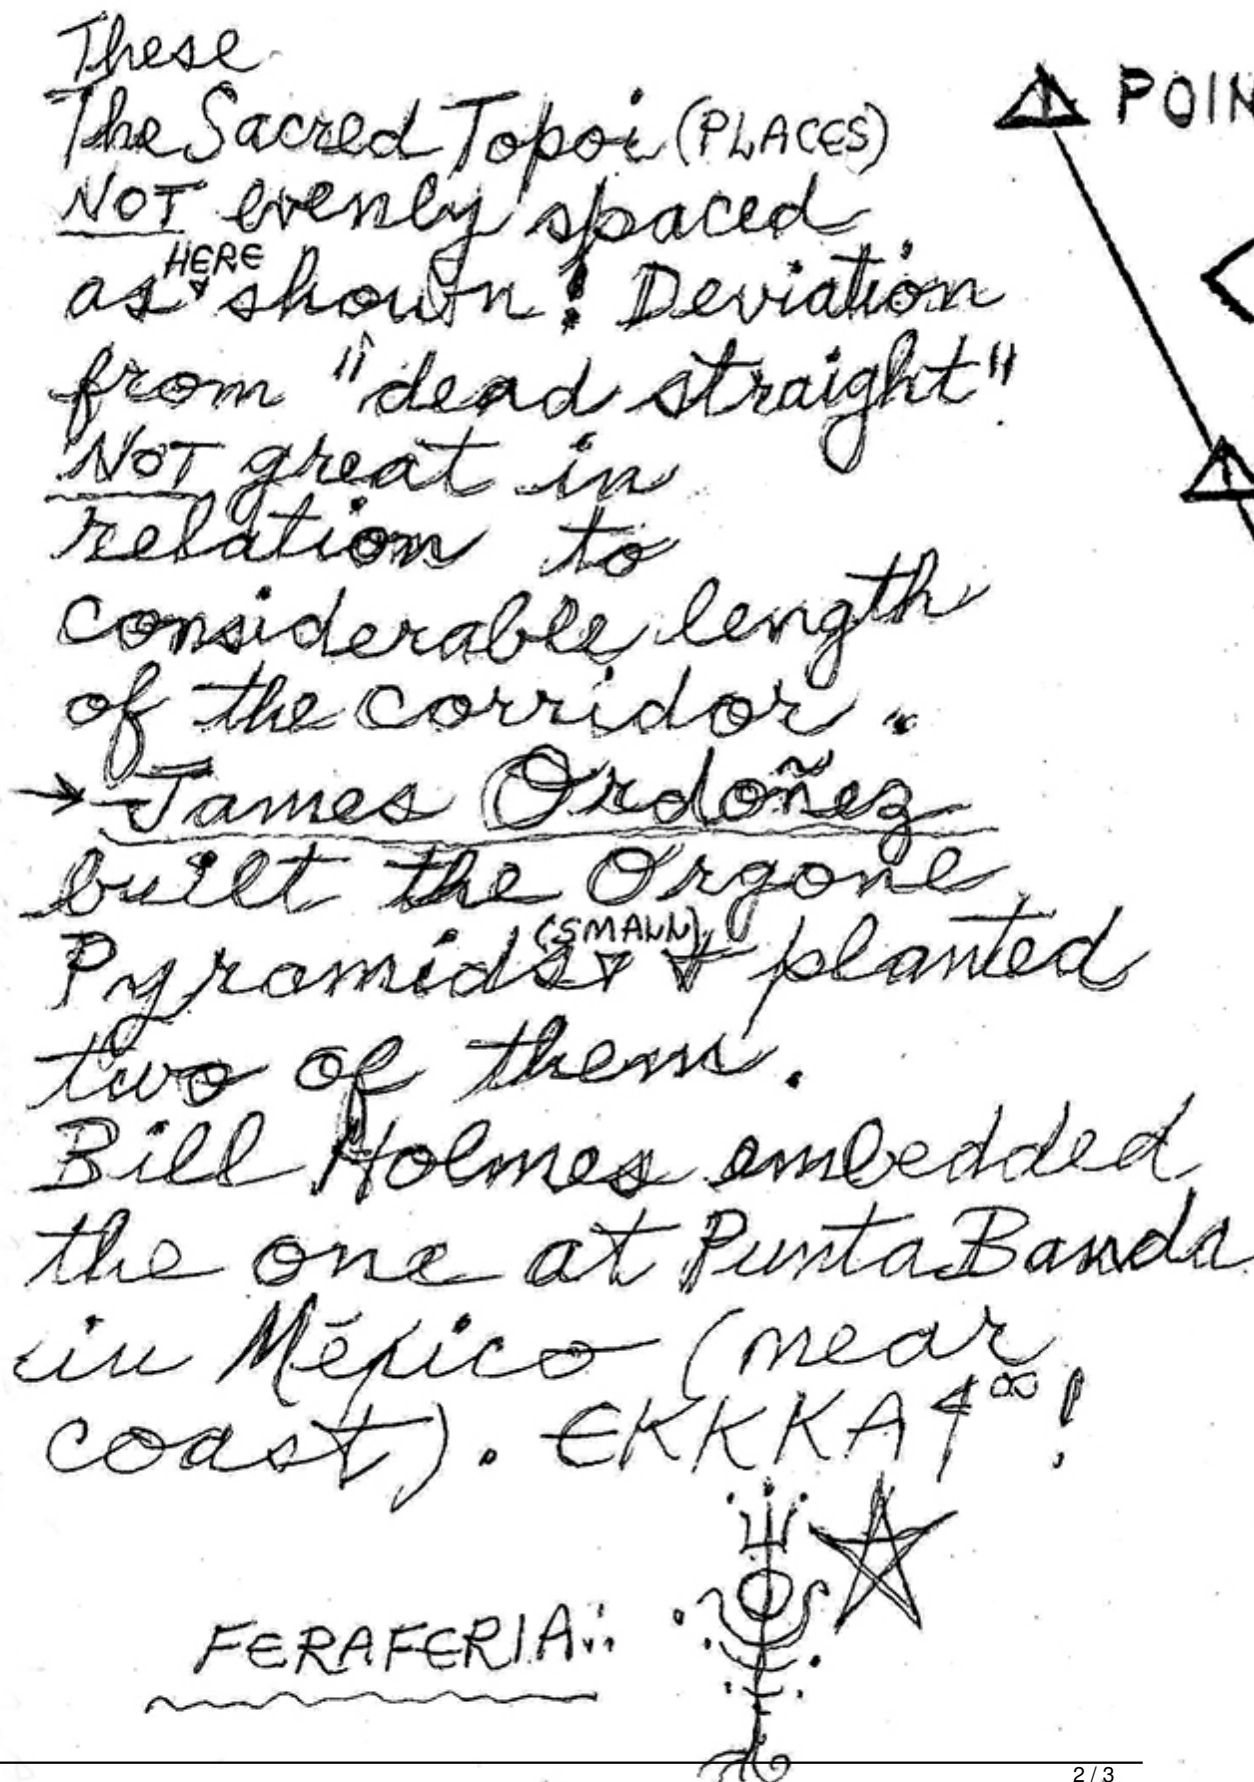 These
The Sacred Topoi (PLACES)
NOT evenly spaced
as HERE shown! Deviation
from "dead straight"
NOT great in
relation to
considerable length
of the corridor.
→ James Ordoñez
built the Orgone
Pyramids (SMALL) + planted
two of them.
Bill Holmes embedded
the one at Punta Banda
in México (near
coast). EKKKA !
FERAFERIA
POIN
2 / 3